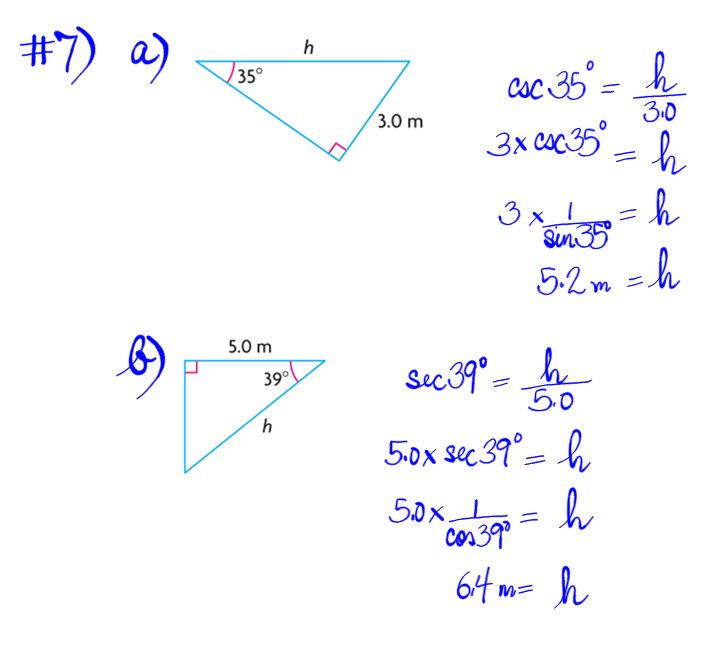 #7) a)
h
35°
3.0 m
csc 35° = h/3.0
3 x csc35° = h
3 x 1/sin35° = h
5.2 m = h
b)
5.0 m
39°
h
sec39° = h/5.0
5.0 x sec39° = h
5.0 x 1/cos39° = h
6.4 m = h